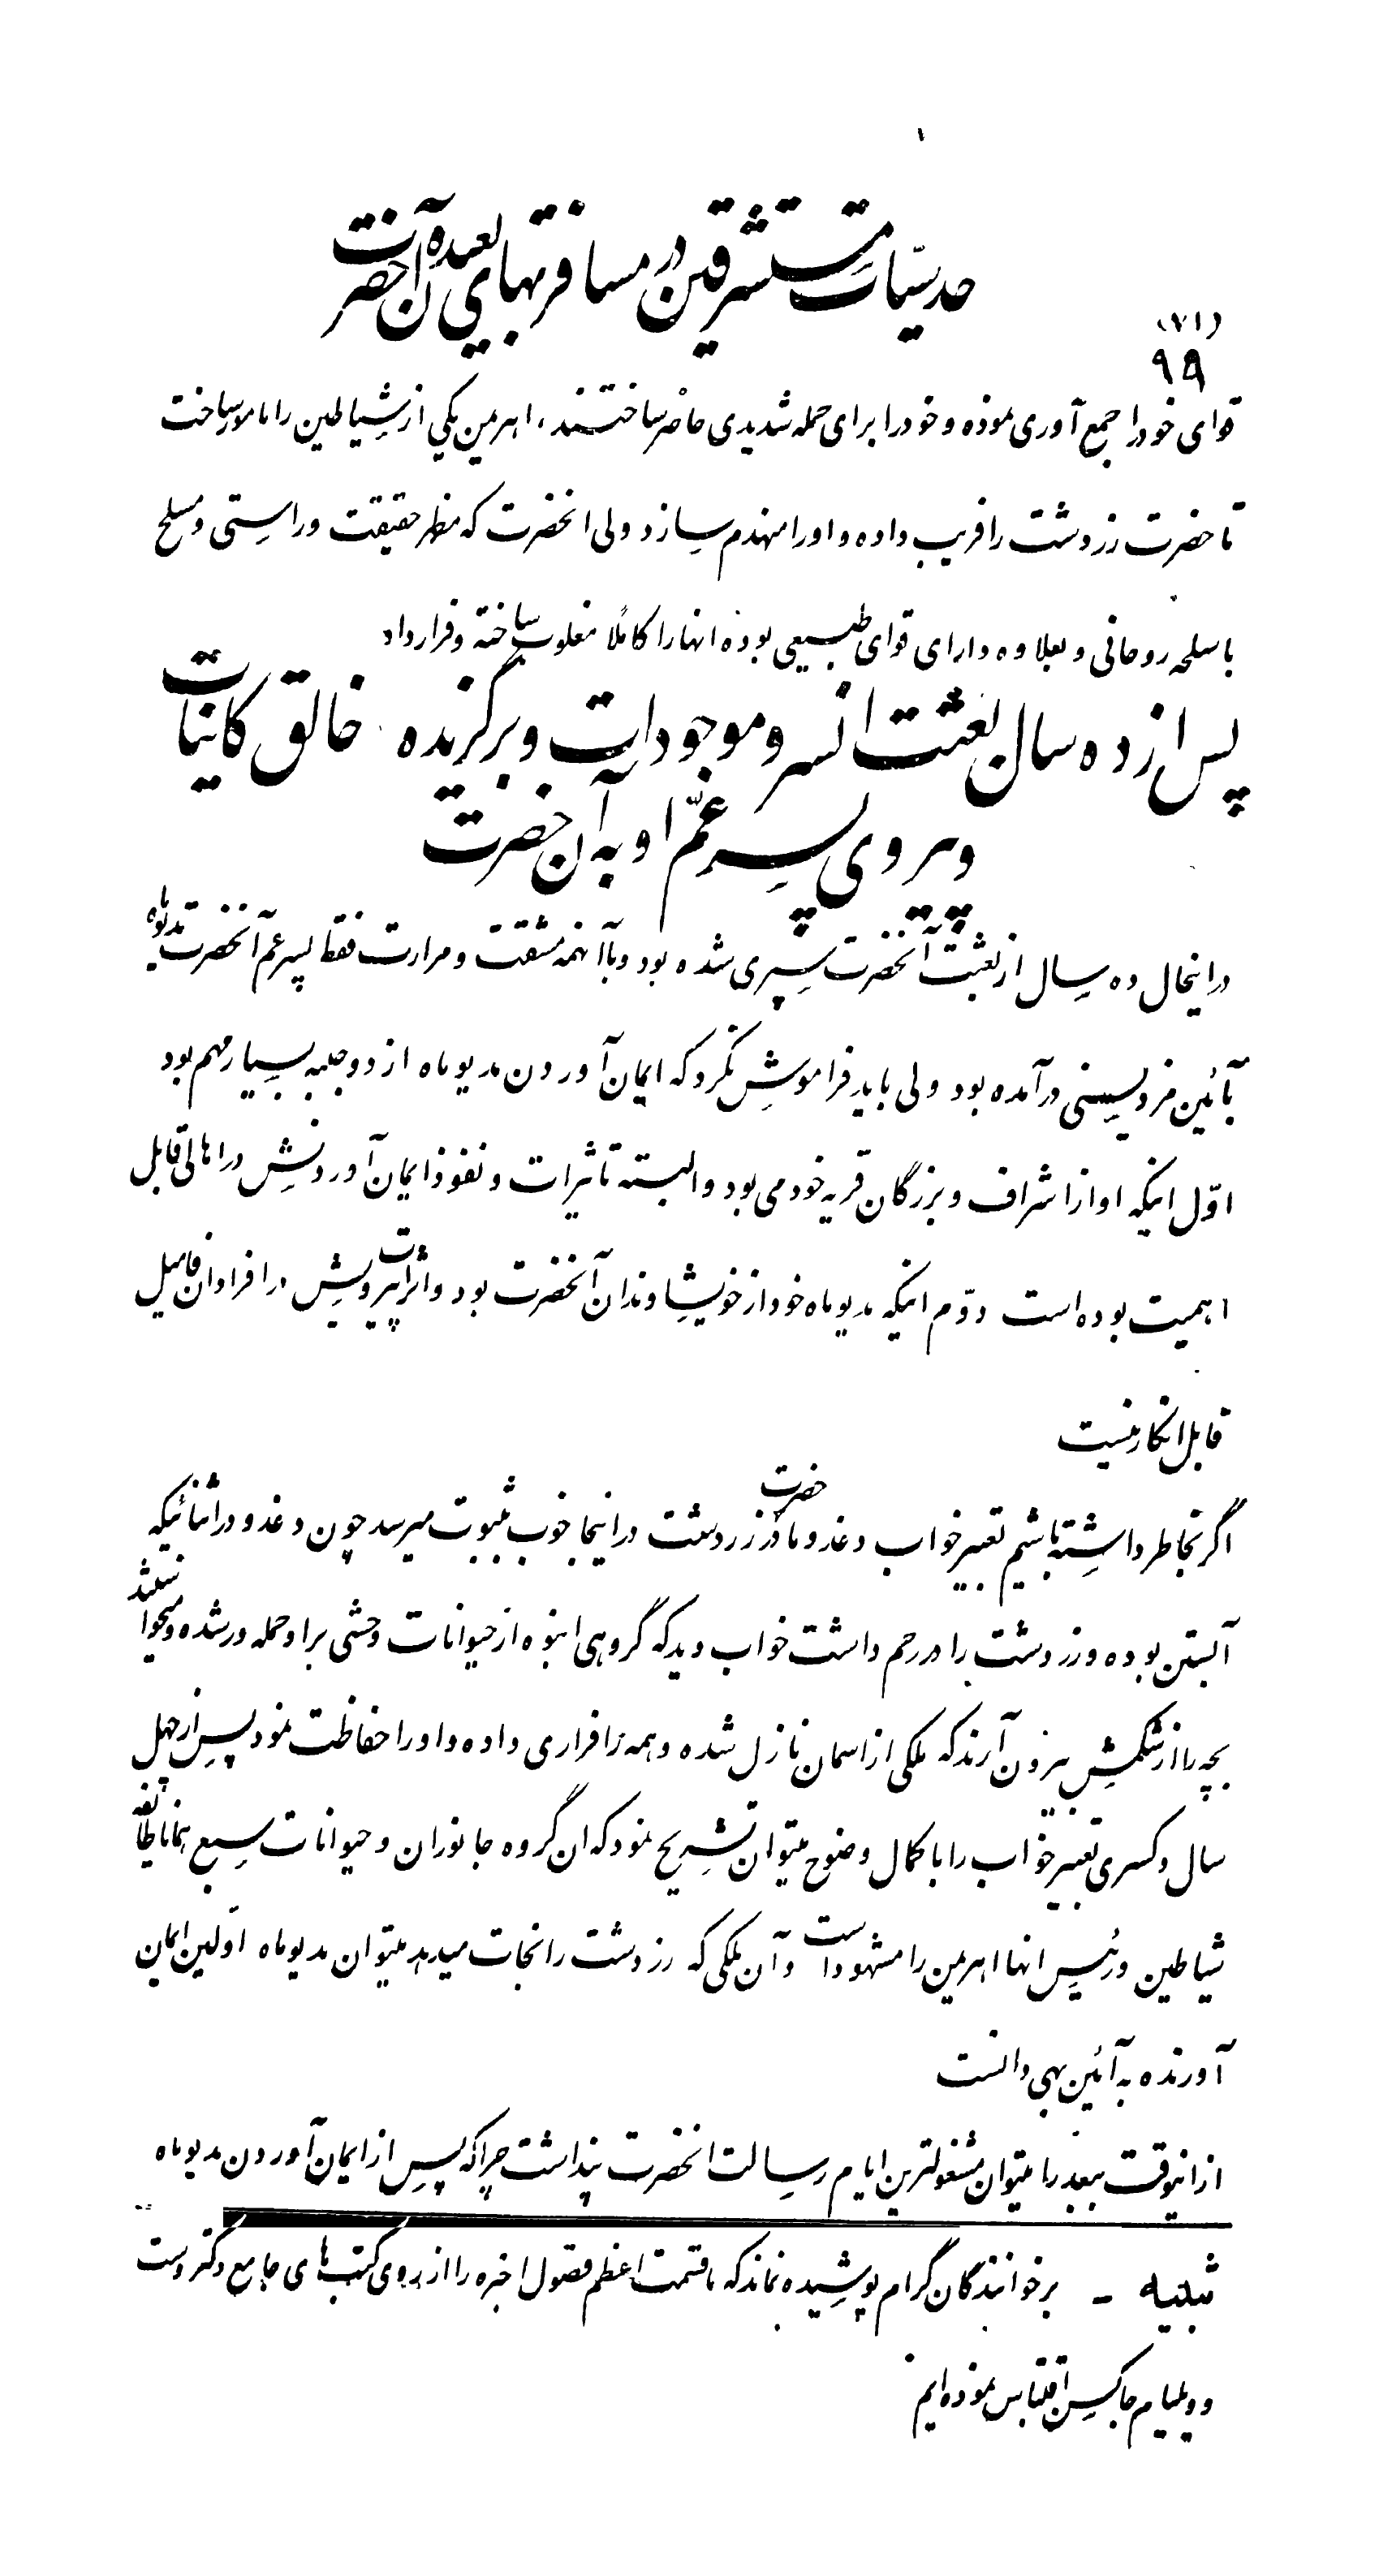 حدسیات مستشرقین در مسافرتهای بعیده آن حضرت
(۷۱)
۹۹
قوای خودرا جمع آوری نموده و خودرا برای حمله شدیدی حاضر ساختند، اهریمن یکی از شیاطین را مامور ساخت
تا حضرت زردشت را فریب داده و اورا منهدم سازد ولی انحضرت که مظهر حقیقت وراستی و مسلح
باسلحه روحانی و بعلاوه دارای قوای طبیعی بوده انهارا کاملًا مغلوب ساخته و فرار داد
پس از ده سال بعثت انسر و موجودات و برگزیده خالق کاینات
و پیروی پسر عمّ او به آن حضرت
در اینحال ده سال از بعثت آنحضرت سپری شده بود و با آنهمه مشقت و مرارت فقط پسر عم آنحضرت مدیوماه
بآئین مزدیسنی در آمده بود ولی باید فراموش نکرد که ایمان آوردن مدیوماه از دو جنبه بسیار مهم بود
اوّل اینکه او از اشراف و بزرگان قریه خود می بود و البته تاثیرات و نفوذ ایمان آوردنش در اهالی قابل
اهمیت بوده است دوّم اینکه مدیوماه خود از خویشاوندان آنحضرت بود و اثرات پیرویش در افراد ان فامیل
قابل انکار نیست
اگر بخاطر داشته باشیم تعبیر خواب دغدو مادر حضرت زردشت در اینجا خوب بثبوت میرسد چون دغدو در اثنائیکه
آبستن بوده و زردشت را در رحم داشت خواب دید که گروهی انبوه از حیوانات وحشی بر او حمله ور شده و میخواستند
بچه را از شکمش بیرون آرند که ملکی از اسمان نازل شده و همه را فراری داده و اورا حفاظت نمود پس از چهل
سال و کسری تعبیر خواب را با کمال وضوح میتوان تشریح نمود که ان گروه جانوران و حیوانات سبع همانا طائفه
شیاطین و رئیس انها اهریمن را مشهود است و آن ملکی که زردشت را نجات میدهد میتوان مدیوماه اوّلین ایمان
آورنده به آئین بهی دانست
از انوقت ببعد را میتوان مشغولترین ایام رسالت انحضرت پنداشت چراکه پس از ایمان آوردن مدیوماه
تنبیه - بر خوانندگان گرام پوشیده نماند که ما قسمت اعظم فصول اخیره را از روی کتب های جامع دکتر وست
و ویلیام جاکسن اقتباس نموده ایم